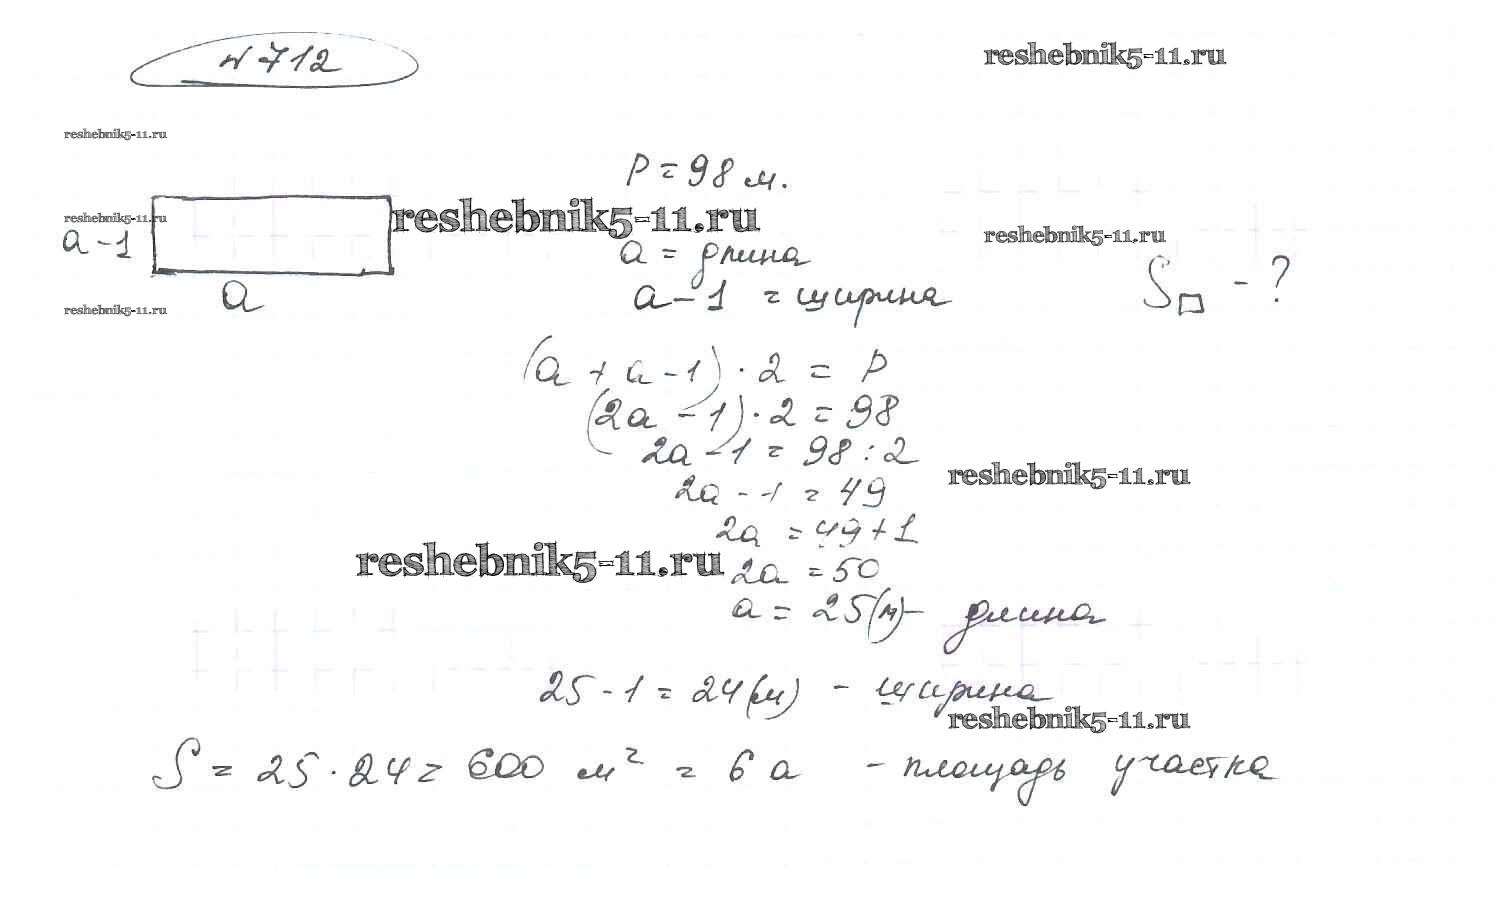 № 712
reshebnik5-11.ru
reshebnik5-11.ru
P = 98 м.
reshebnik5-11.ru
reshebnik5-11.ru
reshebnik5-11.ru
a - 1
a = длина
S□ - ?
a
a - 1 = ширина
reshebnik5-11.ru
(a + a - 1) · 2 = P
(2a - 1) · 2 = 98
2a - 1 = 98 : 2
reshebnik5-11.ru
2a - 1 = 49
2a = 49 + 1
reshebnik5-11.ru
2a = 50
a = 25 (м) - длина
25 - 1 = 24 (м) - ширина
reshebnik5-11.ru
S = 25 · 24 = 600 м² = 6 a - площадь участка